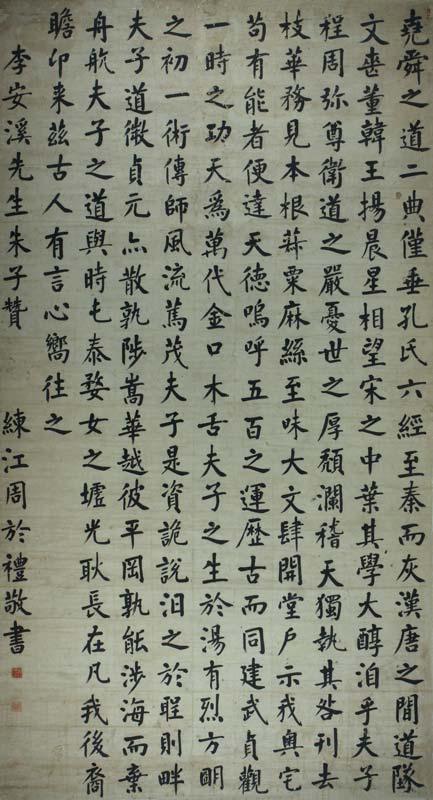 堯舜之道二典僅垂孔氏六經至秦而灰漢唐之間道隊
文喪董韓王揚晨星相望宋之中葉其學大醇洎乎夫子
程周弥尊衛道之嚴憂世之厚頹瀾稽天獨執其咎刊去
枝華務見本根菽粟麻絲至味大文肆開堂戶示我奧宅
苟有能者便達天德嗚呼五百之運歷古而同建武貞觀
一時之功天爲萬代金口木舌夫子之生於湯有烈方朙
之初一術傳師風流篤茂夫子是資詭說汨之於聖則畔
夫子道微貞元亦散孰陟嵩華越彼平岡孰能涉海而棄
舟航夫子之道與時屯泰婺女之墟光耿長在凡我後裔
瞻卬来茲古人有言心嚮往之
李安溪先生朱子贊 練江周於禮敬書